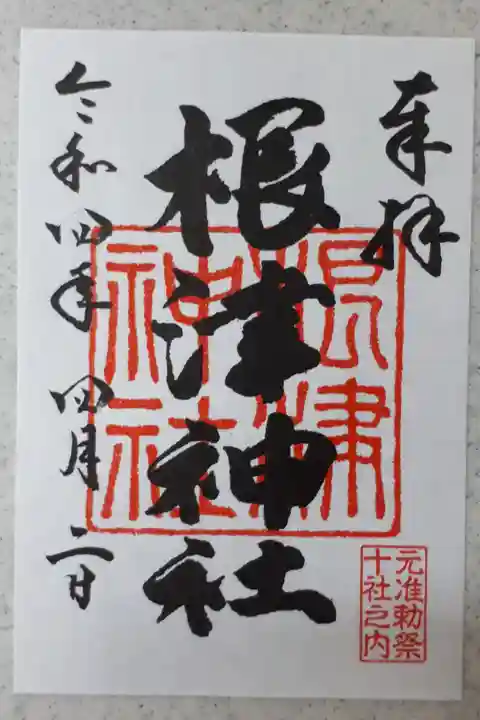 奉拝
根津神社
根津神社
令和四年四月二日
元准勅祭
十社之内